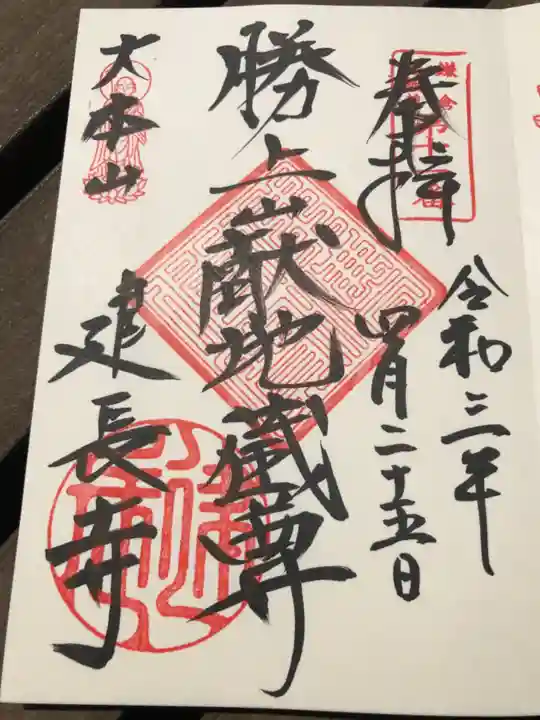 奉拝
令和三年
四月二十五日
勝上嶽地蔵尊
大本山
建長寺